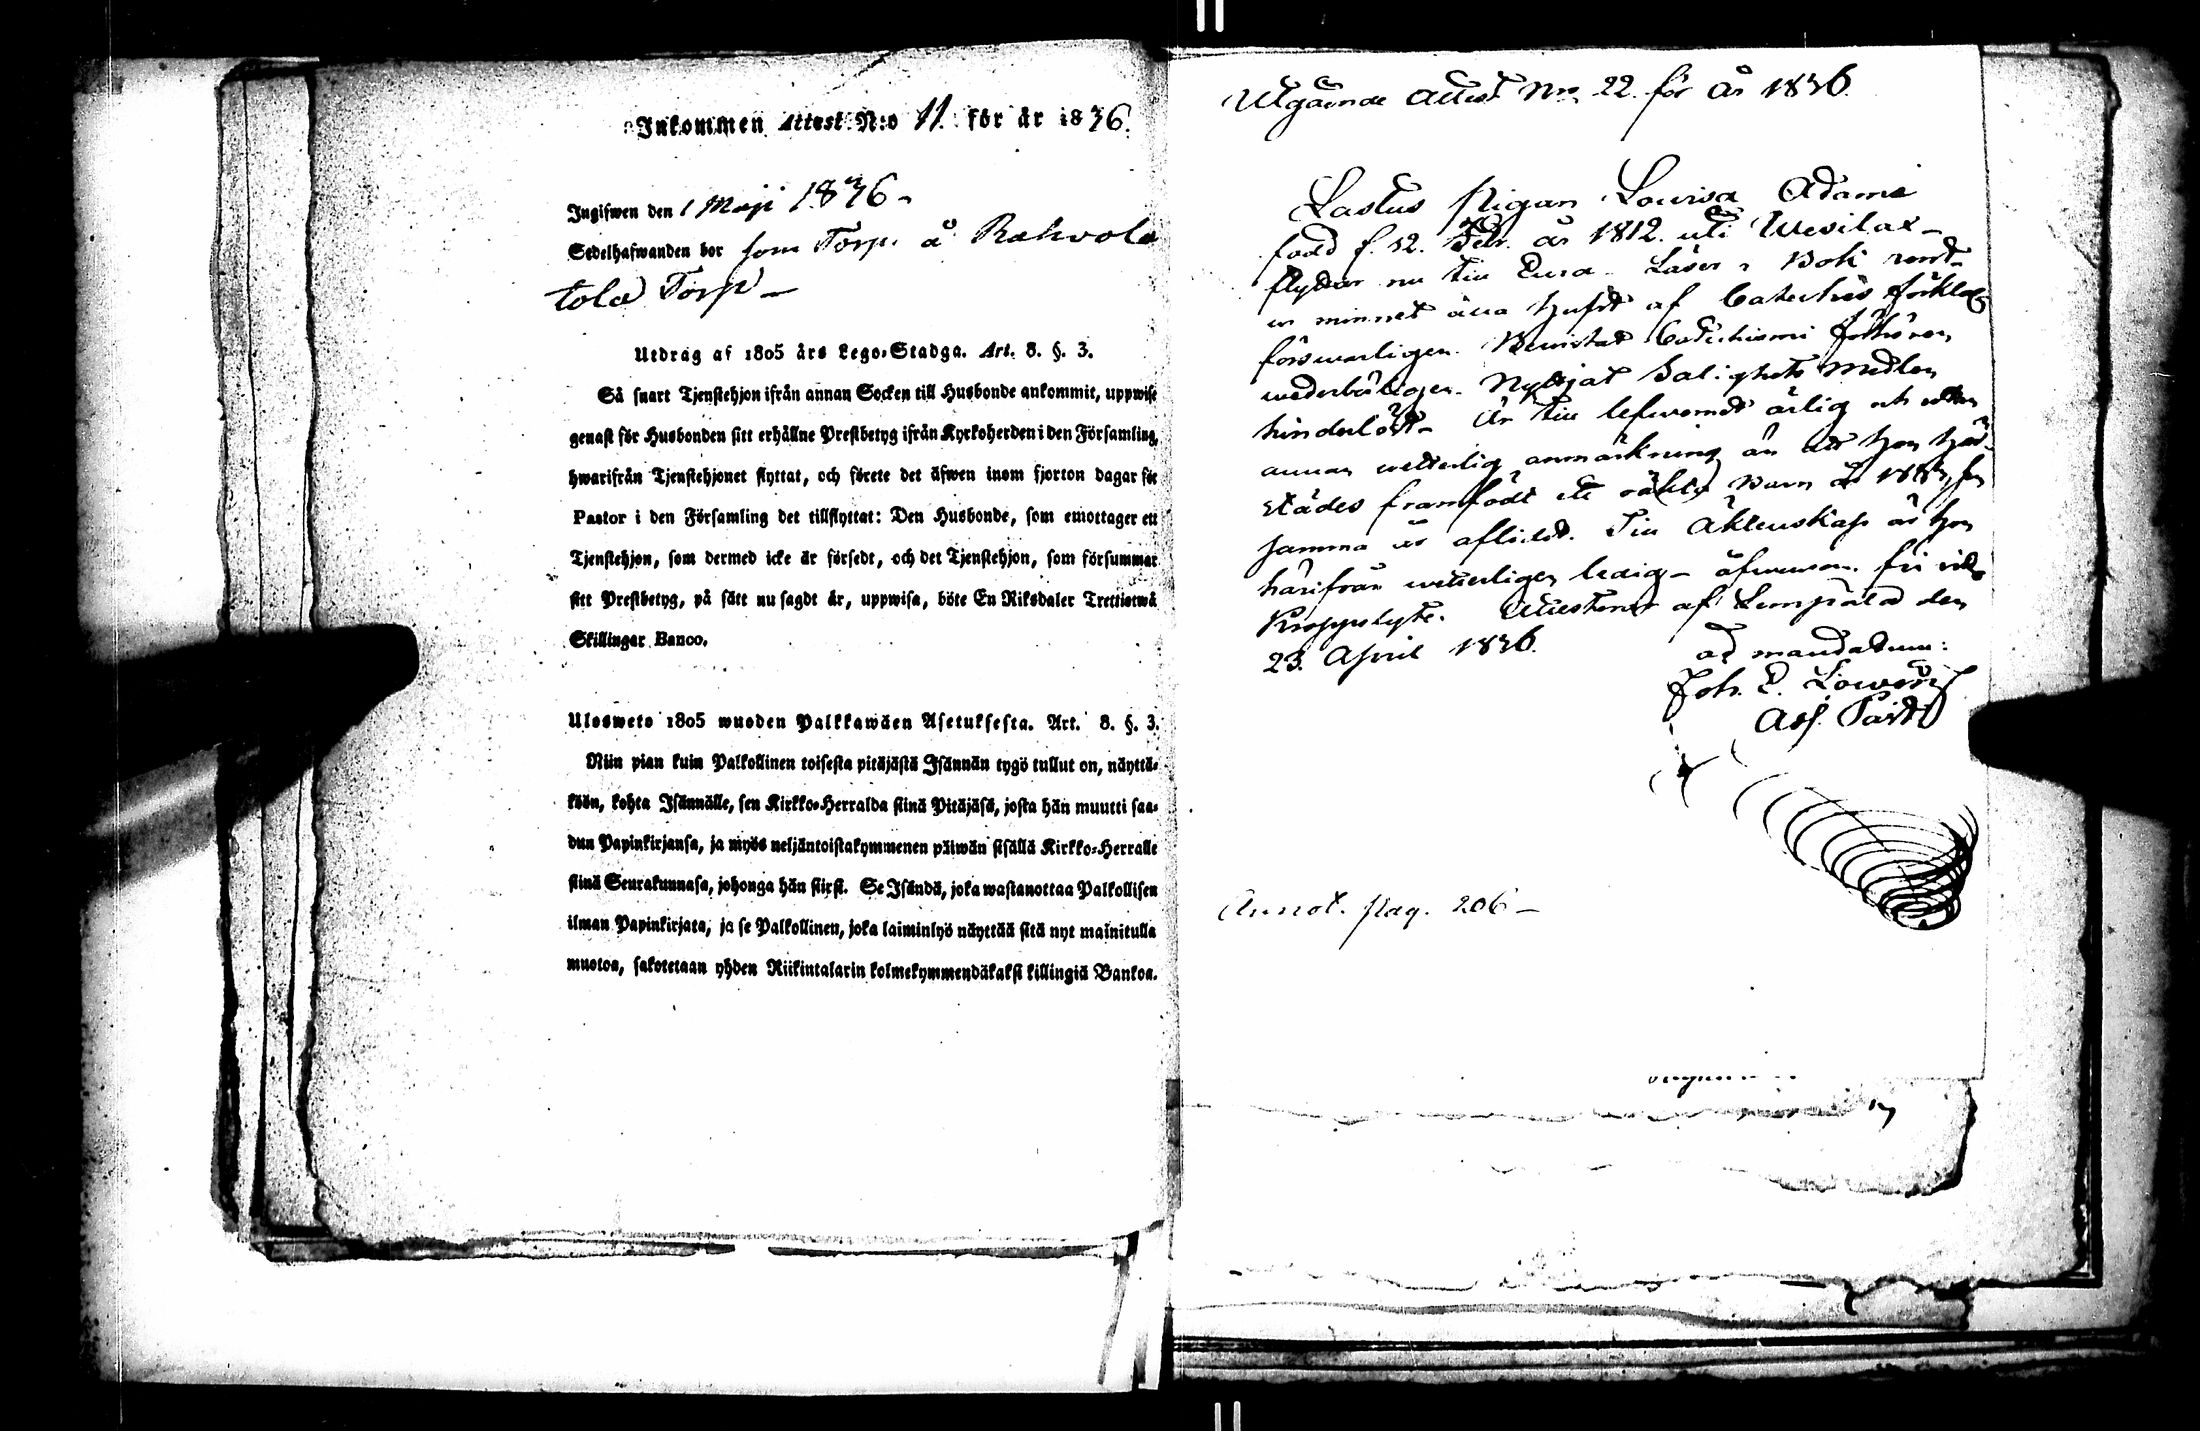 Inkommen Attest N:o 11. för år 1836.
Ingifwen den 1 Maji 1836 -
Sedelhafwanden bor som Torp. å Rahvola
tola Torp -
Utdrag af 1805 års Lego-Stadga. Art. 8. §. 3.
Så snart Tjenstehjon ifrån annan Socken till Husbonde ankommit, uppwise
genast för Husbonden sitt erhållne Prestbetyg ifrån Kyrkoherden i den Församling,
hwarifrån Tjenstehjonet flyttat, och förete det äfwen inom fjorton dagar för
Pastor i den Församling det tillflyttat: Den Husbonde, som emottager ett
Tjenstehjon, som dermed icke är försedt, och det Tjenstehjon, som försummar
sitt Prestbetyg, på sätt nu sagdt är, uppwisa, böte En Riksdaler Trettiotwå
Skillingar Banco.
Ulosweto 1805 wuoden Palkkawäen Asetuksesta. Art. 8. §. 3.
Niin pian kuin Palkollinen toisesta pitäjästä Isännän tygö tullut on, näyttä-
köön, kohta Isännälle, sen Kirkko-Herralda siinä Pitäjäsä, josta hän muutti saa-
dun Papinkirjansa, ja myös neljäntoistakymmenen päiwän sisällä Kirkko-Herralle
siinä Seurakunnasa, johonga hän siirsi. Se Isändä, joka wastanottaa Palkollisen
ilman Papinkirjata, ja se Palkollinen, joka laiminlyö näyttää sitä nyt mainitulla
muotoa, sakotetaan yhden Riikintalarin kolmekymmendäkaksi killingiä Bankoa.
Utgående Attest No 22. för år 1836.
Lastus Pigan Lovisa Adams
född f. 12. Febr. år 1812. uti Wesilax -
flyttar nu till Eura - Läser i Bok rent
ur minnet äfven af Cateches förklar
försvarligen. Bevistat Catechismi förhören
wederbörligen. Nyttjat Salighets medlen
hinderlöst - Är till lefwernet ärlig och utan
annan wetterlig anmärkning än att hon här-
städes framfödt ett oäkta Barn år 183
samma är aflidet. Till Äktenskap är hon
härifrån wetterligen ledig - äfwensom fri
Kroppslyte. Attesterar af Lempälä den
23. April 1836.
ad mandatum:
Joh. E. Lowén
Adj. Past.
Annot. pag. 206 -